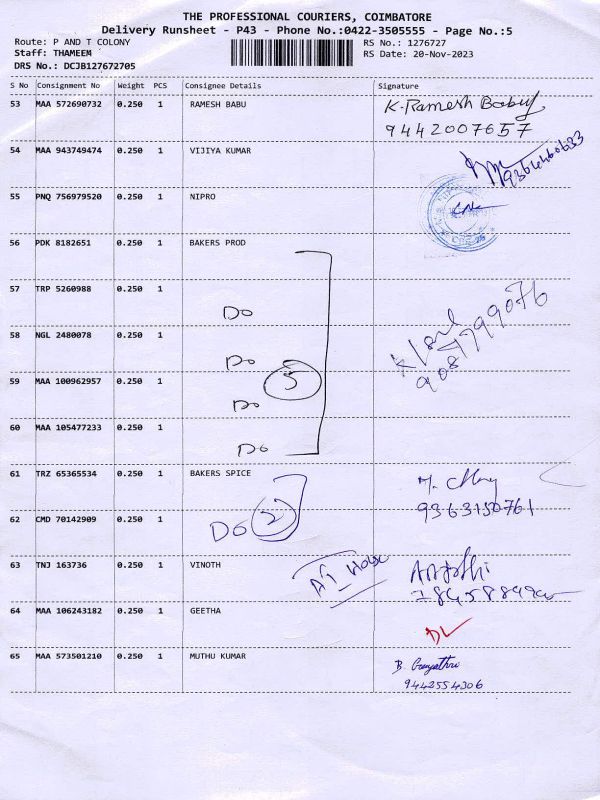 THE PROFESSIONAL COURIERS, COIMBATORE
Delivery Runsheet - P43 - Phone No.:0422-3505555 - Page No.:5
Route: P AND T COLONY
RS No.: 1276727
Staff: THAMEEM
RS Date: 20-Nov-2023
DRS No.: DCJB127672705
S No Consignment No Weight PCS Consignee Details Signature
53 MAA 572690732 0.250 1 RAMESH BABU K. Ramesh Babu
9442007657
54 MAA 943749474 0.250 1 VIJIYA KUMAR
55 PNQ 756979520 0.250 1 NIPRO
56 PDK 8182651 0.250 1 BAKERS PROD
57 TRP 5260988 0.250 1
Do
58 NGL 2480078 0.250 1
Do
59 MAA 100962957 0.250 1 5
Do
60 MAA 105477233 0.250 1
Do
61 TRZ 65365534 0.250 1 BAKERS SPICE
9363150761
62 CMD 70142909 0.250 1 Do 2
63 TNJ 163736 0.250 1 VINOTH
64 MAA 106243182 0.250 1 GEETHA
DL
65 MAA 573501210 0.250 1 MUTHU KUMAR B Gayathri
9442554306